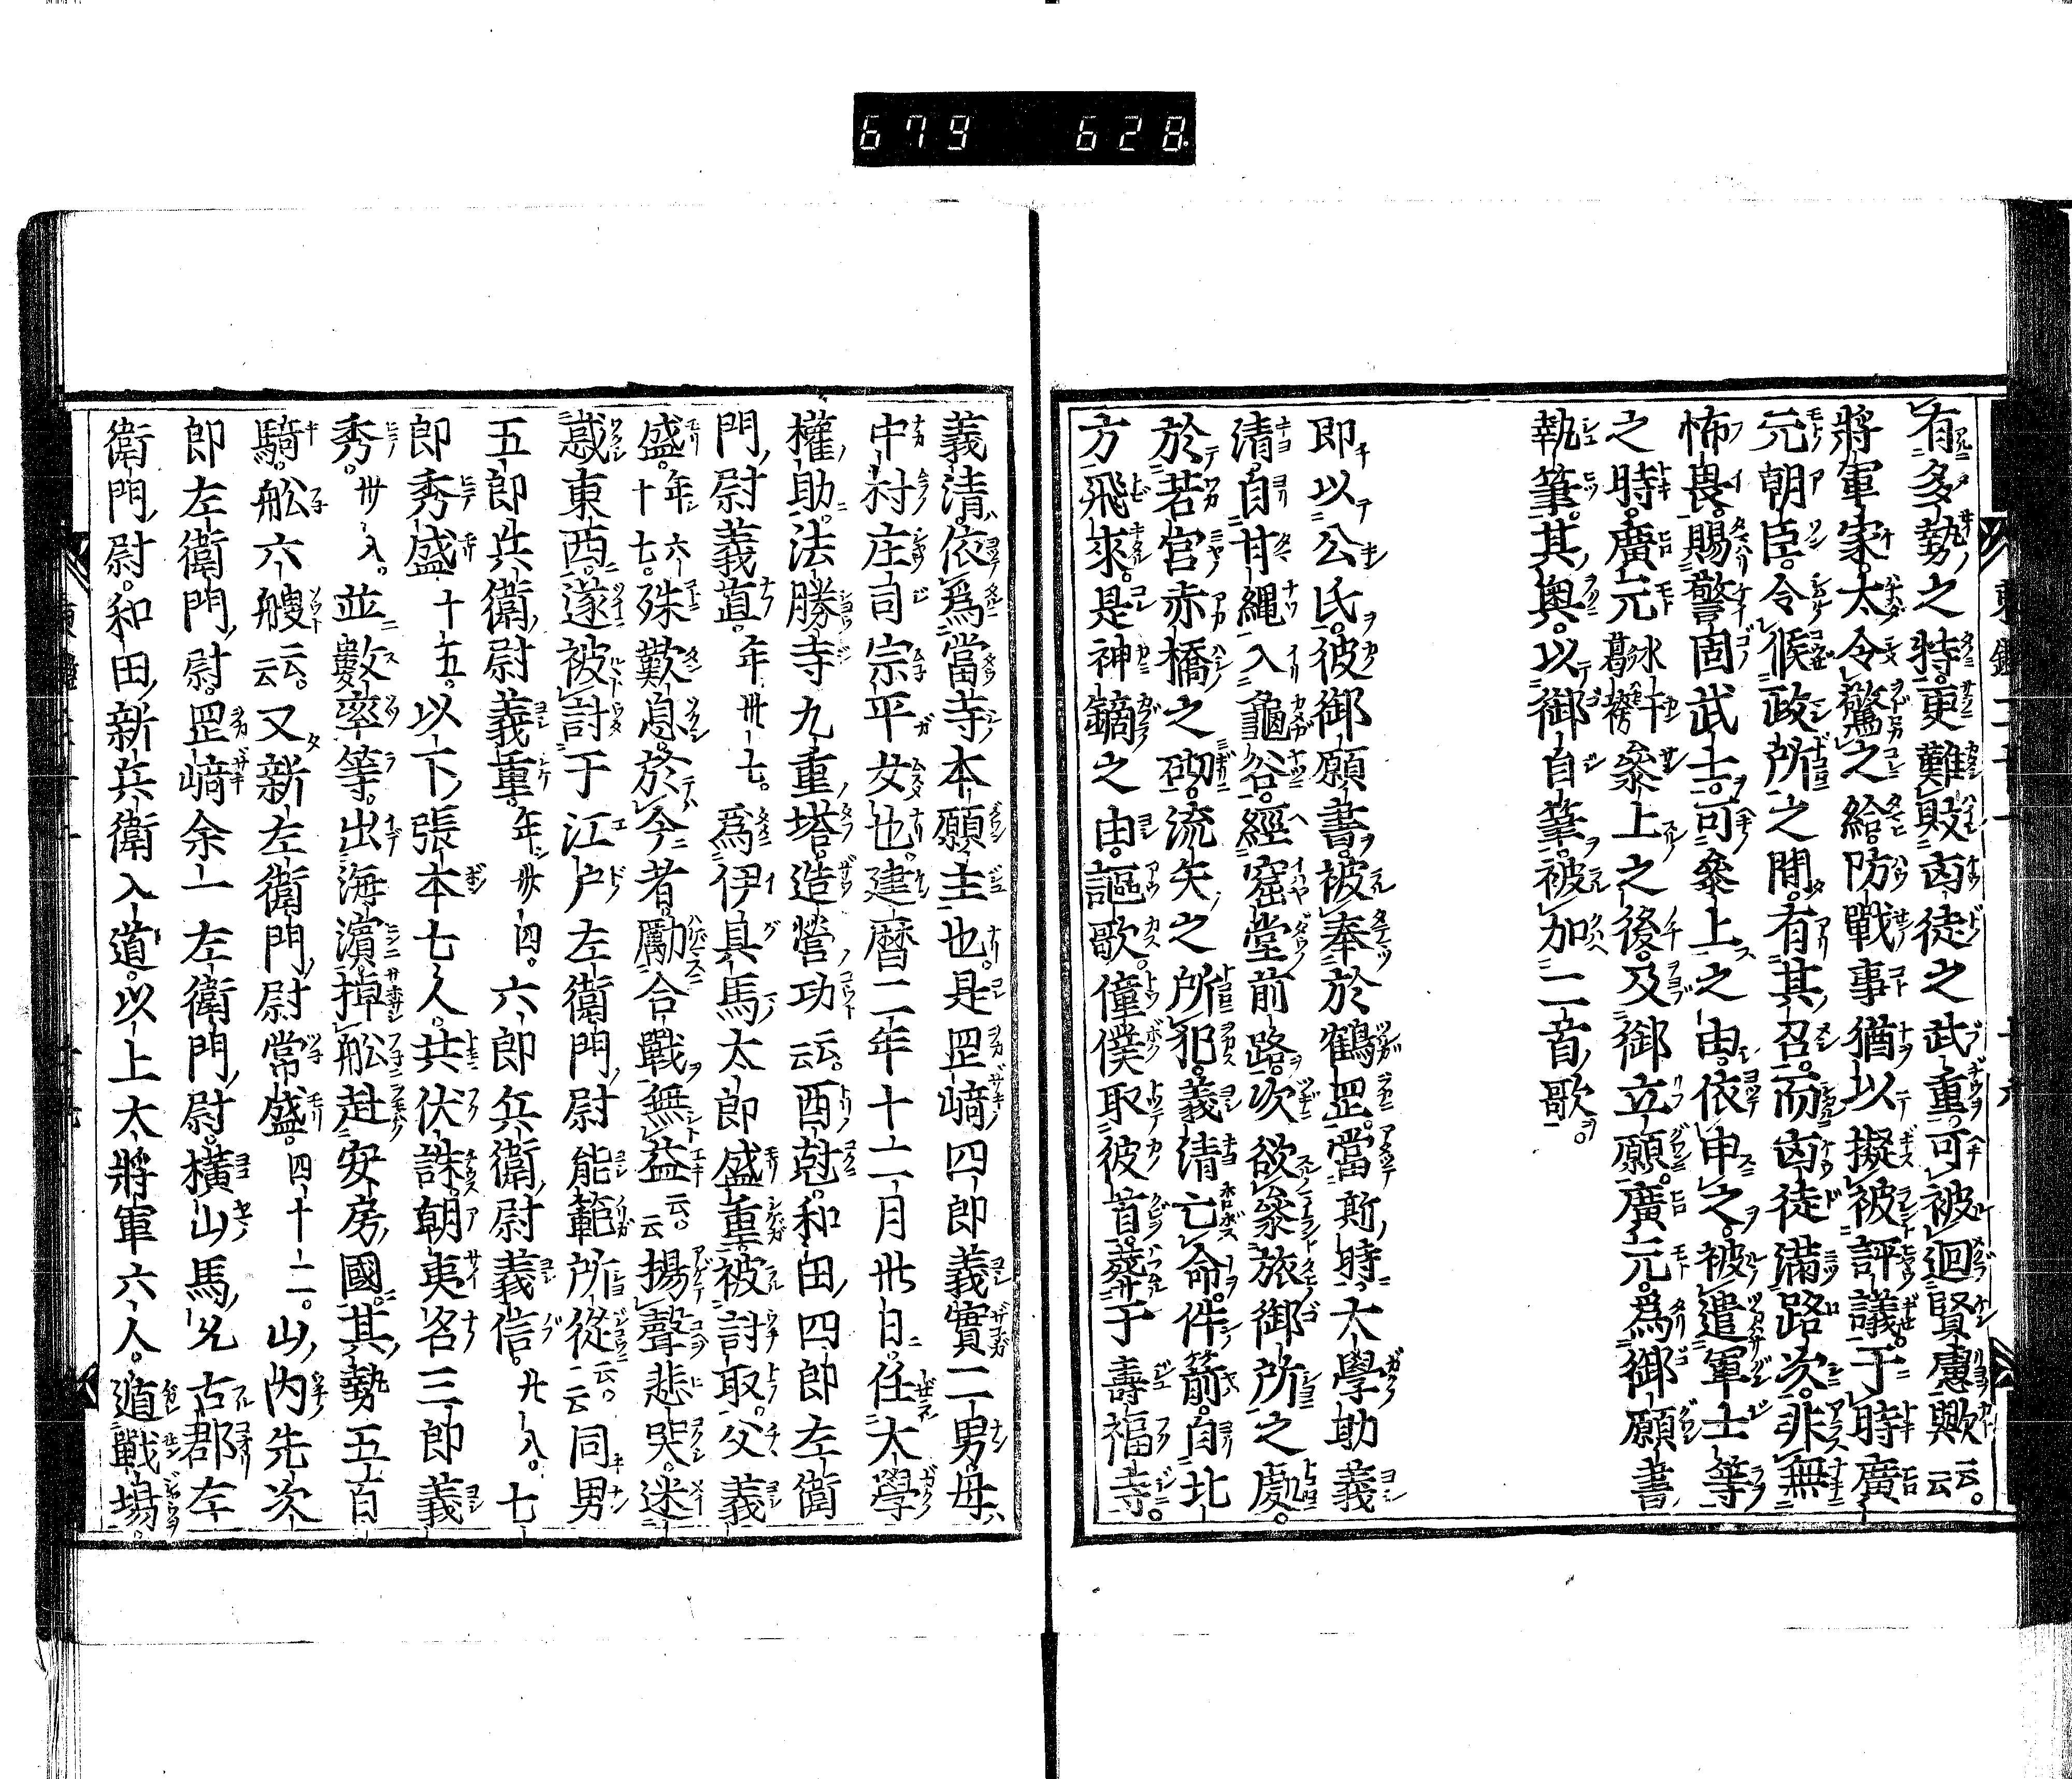 679 628
有多勢之特更難敗凶徒之武重可被迴賢慮歟云云
將軍家太令驚之給防戰事猶以擬被評議于時廣
元朝臣令候政所之間有其召而凶徒滿路次非無
怖畏賜警固武士可參上之由依申之被遣軍士等
之時廣元水干葛袴參上之後及御立願廣元爲御願書
執筆其奥以御自筆被加二首歌
即以公氏彼御願書被奉於鶴岡當斯時大學助義
清自甘縄入龜谷經窟堂前路次欲參旅御所之處
於若宮赤橋之砌流矢之所犯義清亡命件箭自北
方飛來是神鏑之由謳歌僮僕取彼首葬于壽福寺
義清依爲當寺本願主也是岡﨑四郎義實二男母
中村庄司宗平女也建曆二年十二月卅日任大學
權助法勝寺九重塔造營功云云酉尅和田四郎左衛
門尉義直年卅七爲伊具馬太郎盛重被討取父義
盛年六十七殊歎息於今者勵合戰無益云云揚聲悲哭迷
惑東西遂被討于江戸左衛門尉能範所從云云同男
五郎兵衛尉義重年卅四六郎兵衛尉義信廿八七
郎秀盛十五以下張本七人共伏誅朝夷名三郎義
秀卅八並數率等出海濵掉舩赴安房國其勢五百
騎舩六艘云云又新左衛門尉常盛四十二山内先次
郎左衛門尉岡﨑余一左衛門尉横山馬允古郡左
衛門尉和田新兵衛入道以上大將軍六人遁戰場